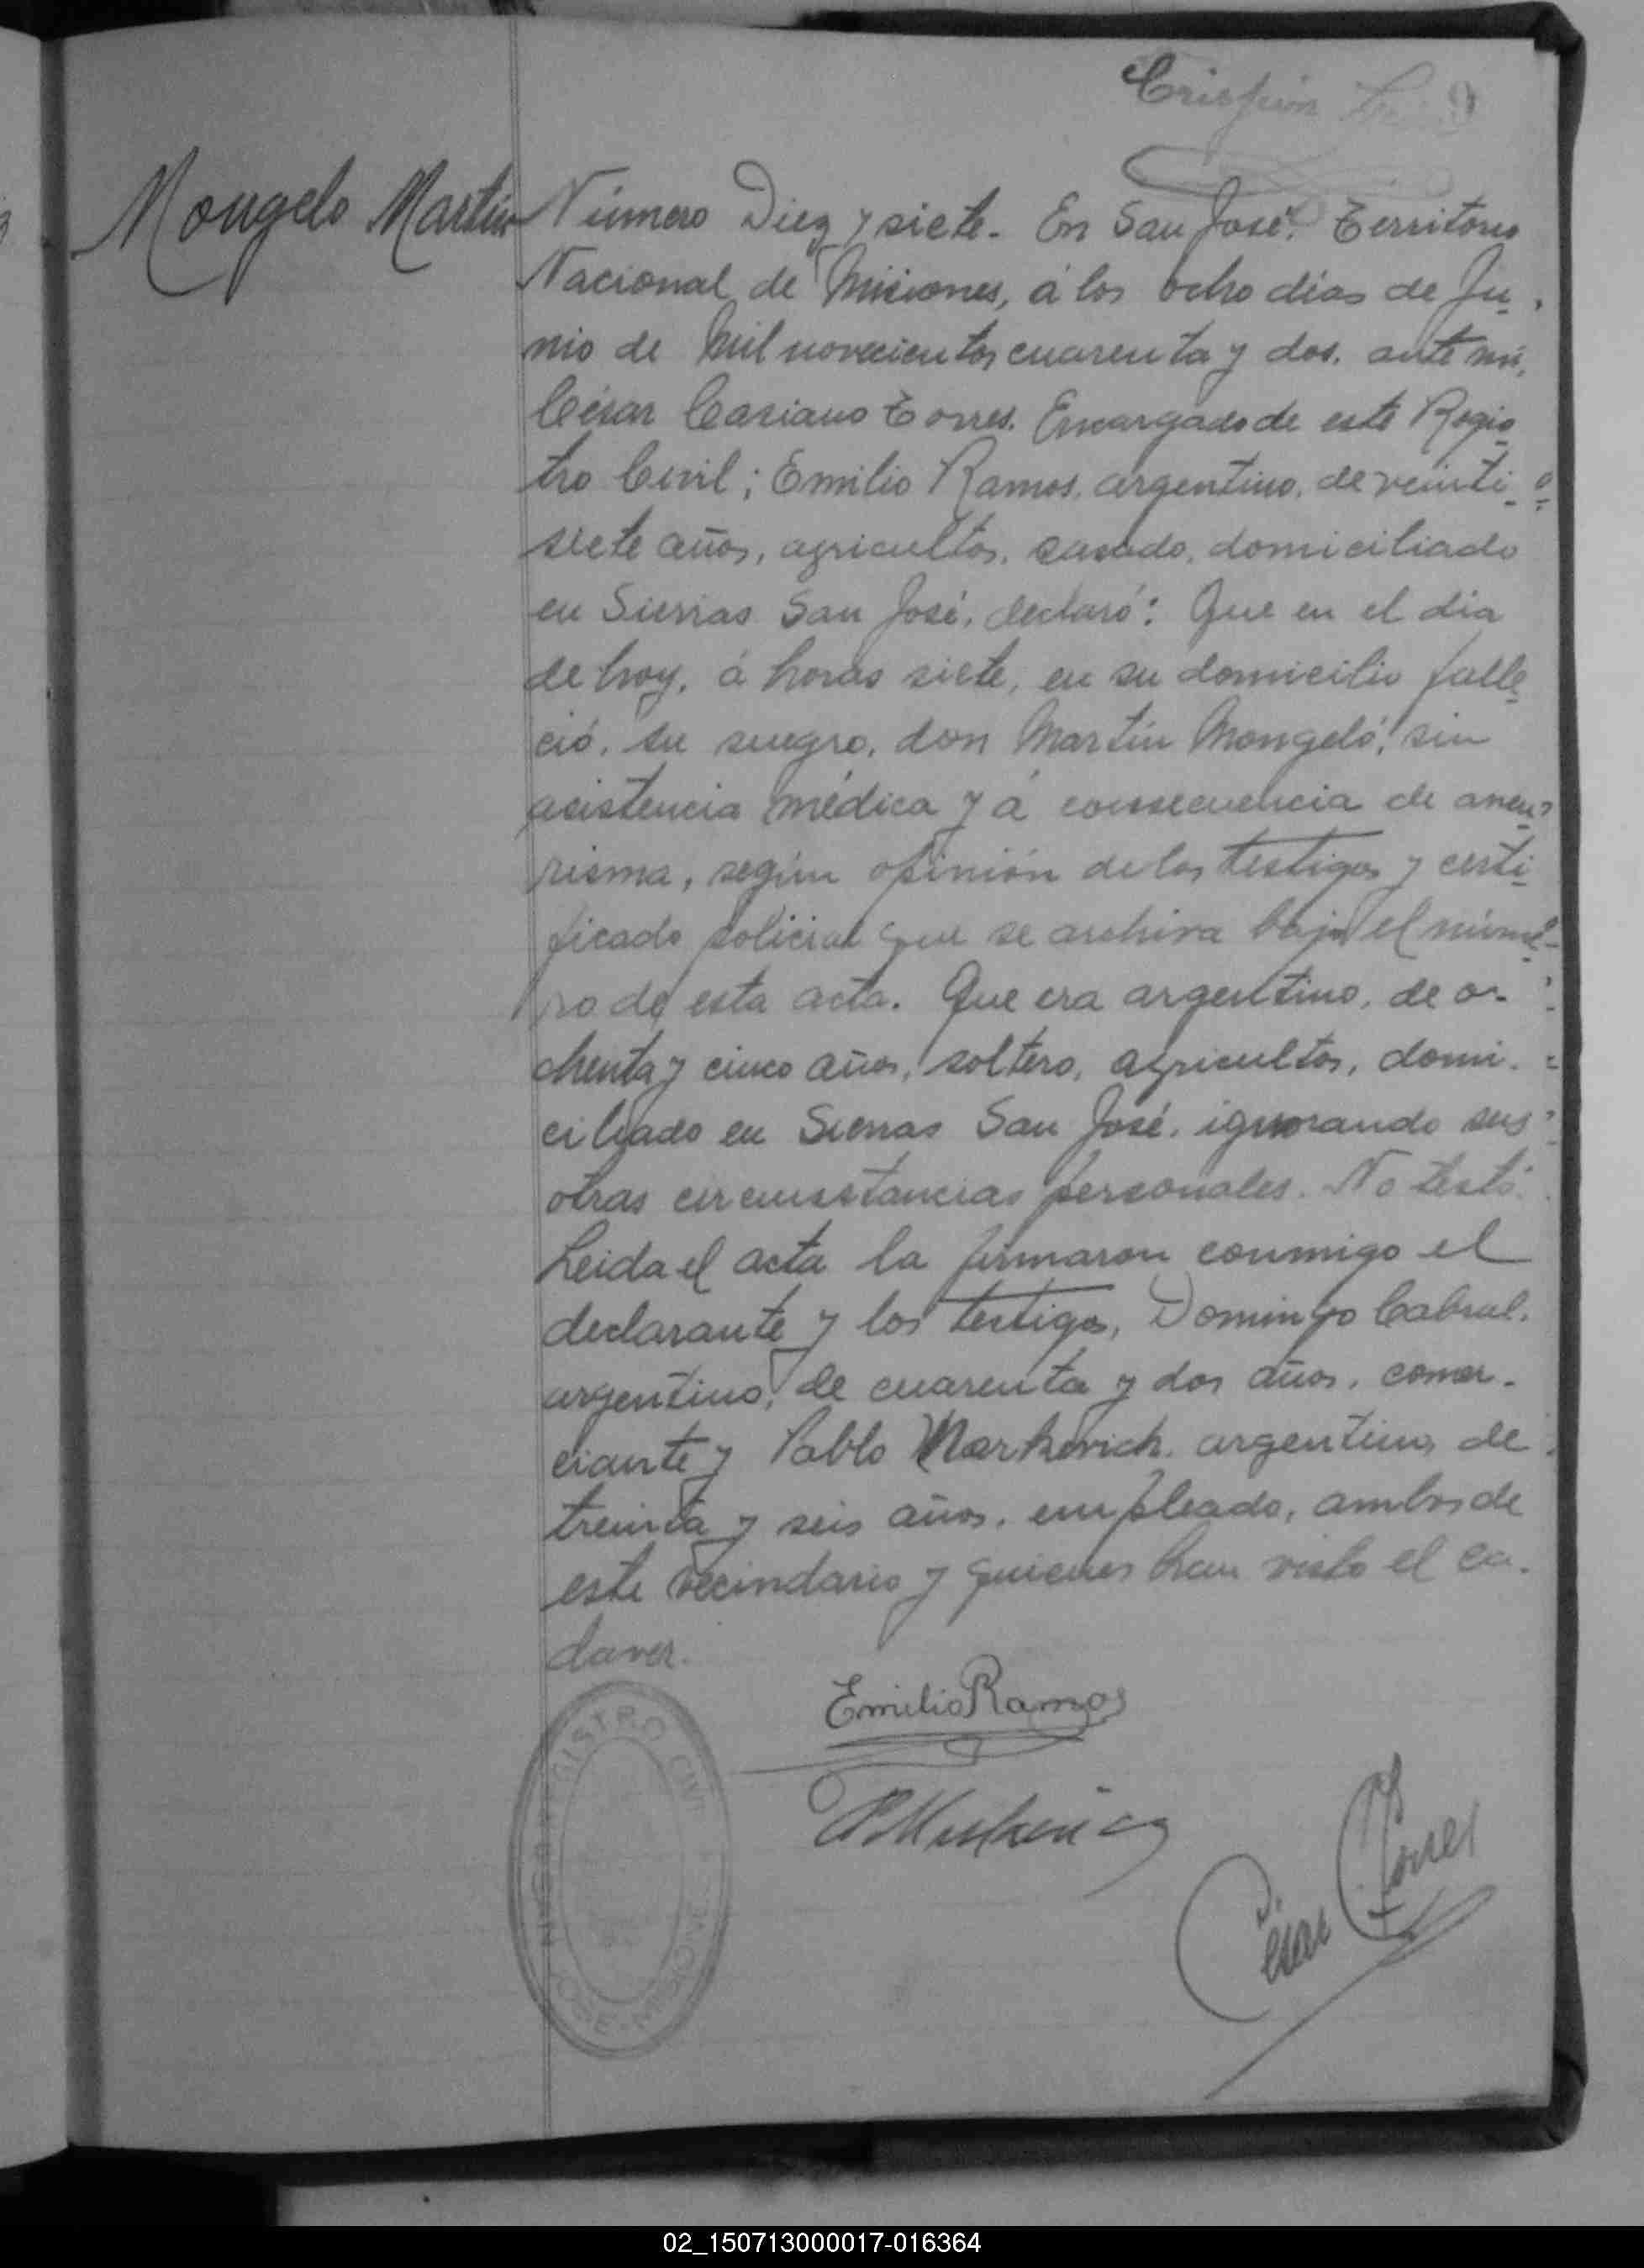 Crispín
Mongelo Martín
Número Diez y siete. En San José. Territorio
Nacional de Misiones, á los ocho días de Ju-
nio de mil novecientos cuarenta y dos. ante mí,
César Casiano Torres. Encargado de este Regis-
tro Civil; Emilio Ramos, argentino, de veinti-
siete años, agricultor, casado, domiciliado
en Sierras San José, declaró: Que en el día
de hoy, á horas siete, en su domicilio falle-
ció, su suegro, don Martín Mongeló, sin
asistencia médica y á consecuencia de aneu-
risma, según opinión de los testigos y certi-
ficado policial que se archiva bajo el núme-
ro de esta acta. Que era argentino, de o-
chenta y cinco años, soltero, agricultor, domi-
ciliado en Sierras San José, ignorando sus
otras circunstancias personales. No testó.
Leida el acta la firmaron conmigo el
declarante y los testigos, Domingo Cabral,
argentino, de cuarenta y dos años, comer-
ciante y Pablo Markevich, argentino, de
treinta y seis años, empleado, ambos de
este vecindario y quienes han visto el ca-
daver.
Emilio Ramos
César Torres
REGISTRO CIVIL
SAN JOSE - MISIONES
02_150713000017-016364